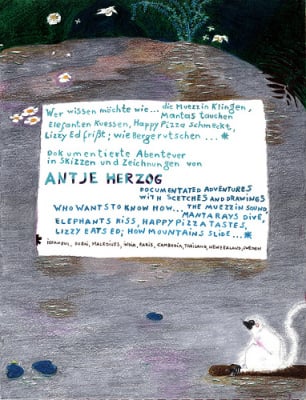 Wer wissen möchte wie... die Muezzin Klingen,
Mantas tauchen
Elefanten Kuessen, Happy Pizza schmeckt,
Lizzy Ed frißt; wie Berge rutschen ...*
Dokumentierte Abenteuer
in Skizzen und Zeichnungen von
ANTJE HERZOG
DOCUMENTATED ADVENTURES
WITH SCETCHES AND DRAWINGS
WHO WANTS TO KNOW HOW... THE MUEZZIN SOUND,
MANTARAYS DIVE,
ELEPHANTS KISS, HAPPY PIZZA TASTES,
LIZZY EATS ED; HOW MOUNTAINS SLIDE ...*
* ISTANBUL, DUBAI, MALEDIVES, INDIA, PARIS, CAMBODIA, THAILAND, NEWZEALAND, SWEDEN